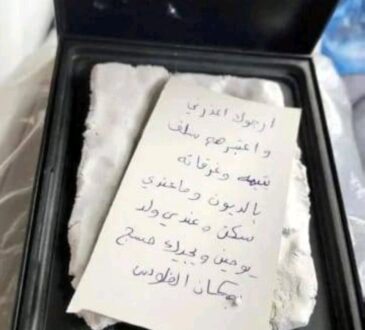 ارجوك اعذرني
واعتبرهم سلف
يتيمه وغرقانه
بالديون وماعندي
سكن وعندي ولد
يومين ويجيك
مكان الفلوس